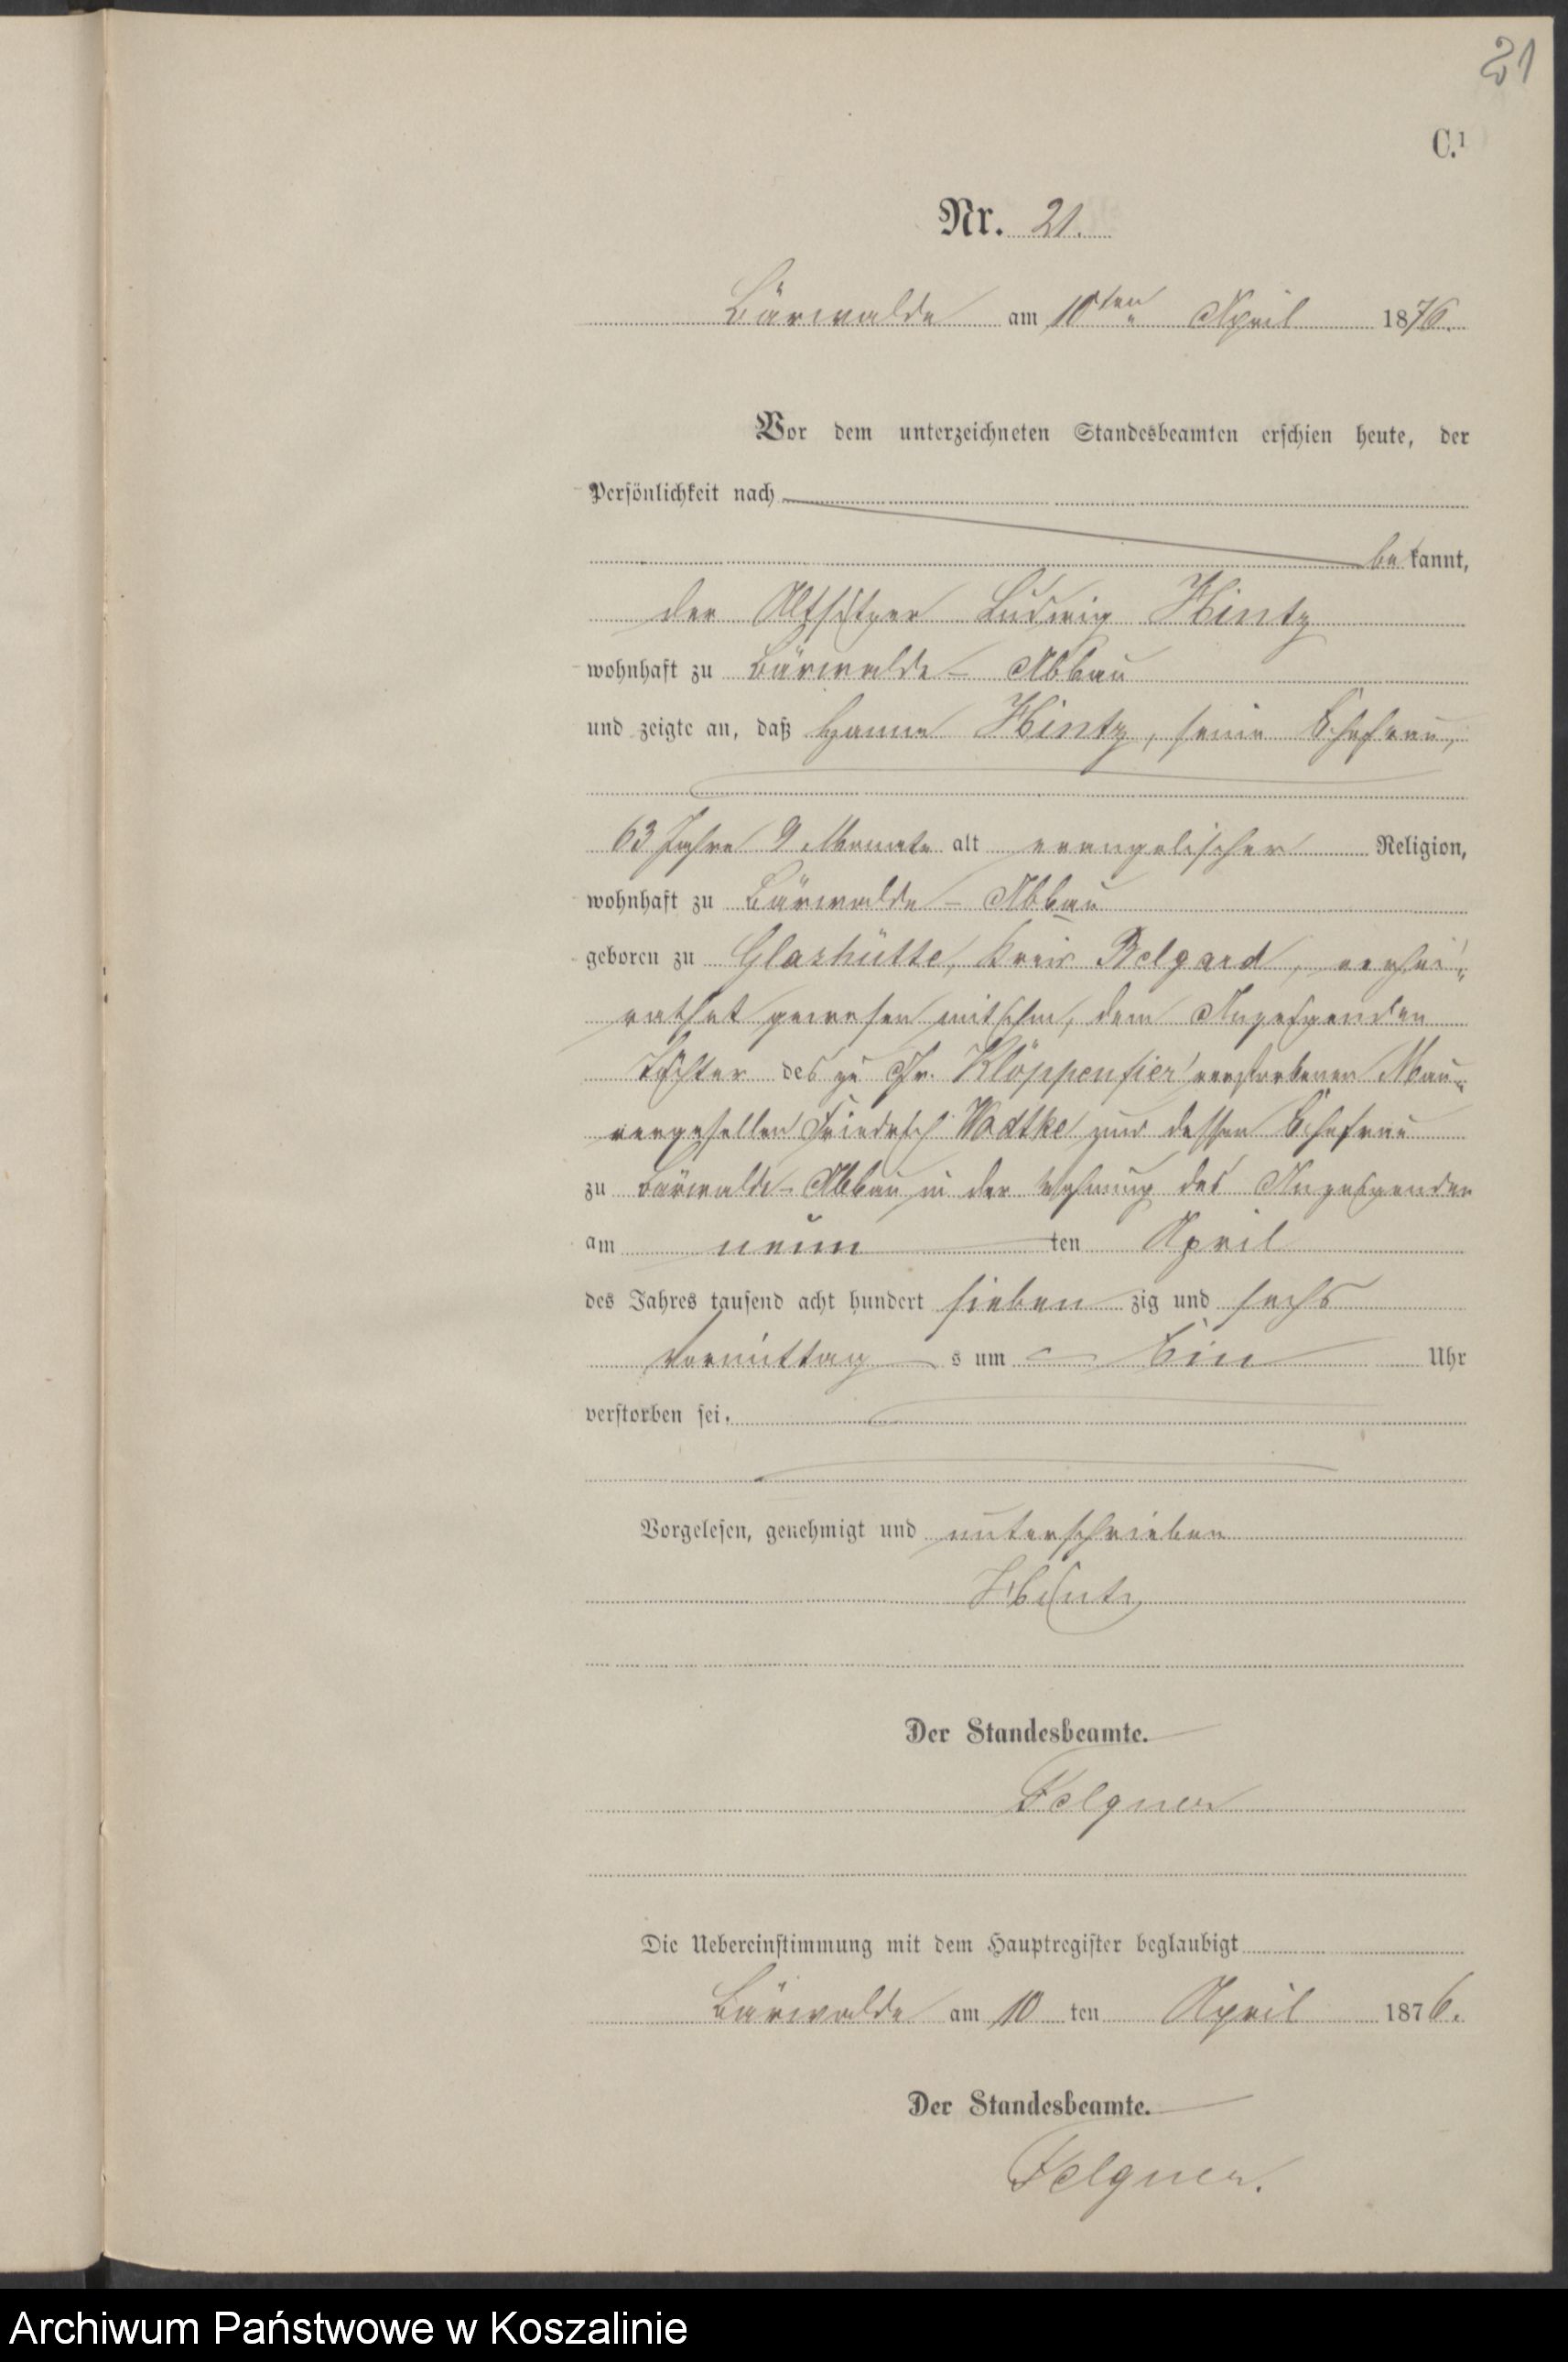 21
C.¹
Nr. 21.
Bärwalde am 10ten April 1876.
Vor dem unterzeichneten Standesbeamten erschien heute, der
Persönlichkeit nach
bekannt,
der Altsitzer Ludwig Hintz
wohnhaft zu Bärwalde - Abbau
und zeigte an, daß Hanne Hintz, seine Ehefrau,
63 Jahre 9 Monate alt evangelischer Religion,
wohnhaft zu Bärwalde - Abbau
geboren zu Glashütte, Kreis Belgard, verhei-
rathet gewesen mit ihm, dem Anzeigenden
Tochter des zu Gr. Klöppenfier verstorbenen Mau-
rergesellen Friedrich Wadtke und dessen Ehefrau
zu Bärwalde - Abbau in der Wohnung des Anzeigenden
am neun ten April
des Jahres tausend acht hundert sieben zig und sechs
Vormittag s um Ein Uhr
verstorben sei.
Vorgelesen, genehmigt und unterschrieben
Hintz
Der Standesbeamte.
Felgner
Die Uebereinstimmung mit dem Hauptregister beglaubigt
Bärwalde am 10 ten April 1876.
Der Standesbeamte.
Felgner.
Archiwum Państwowe w Koszalinie